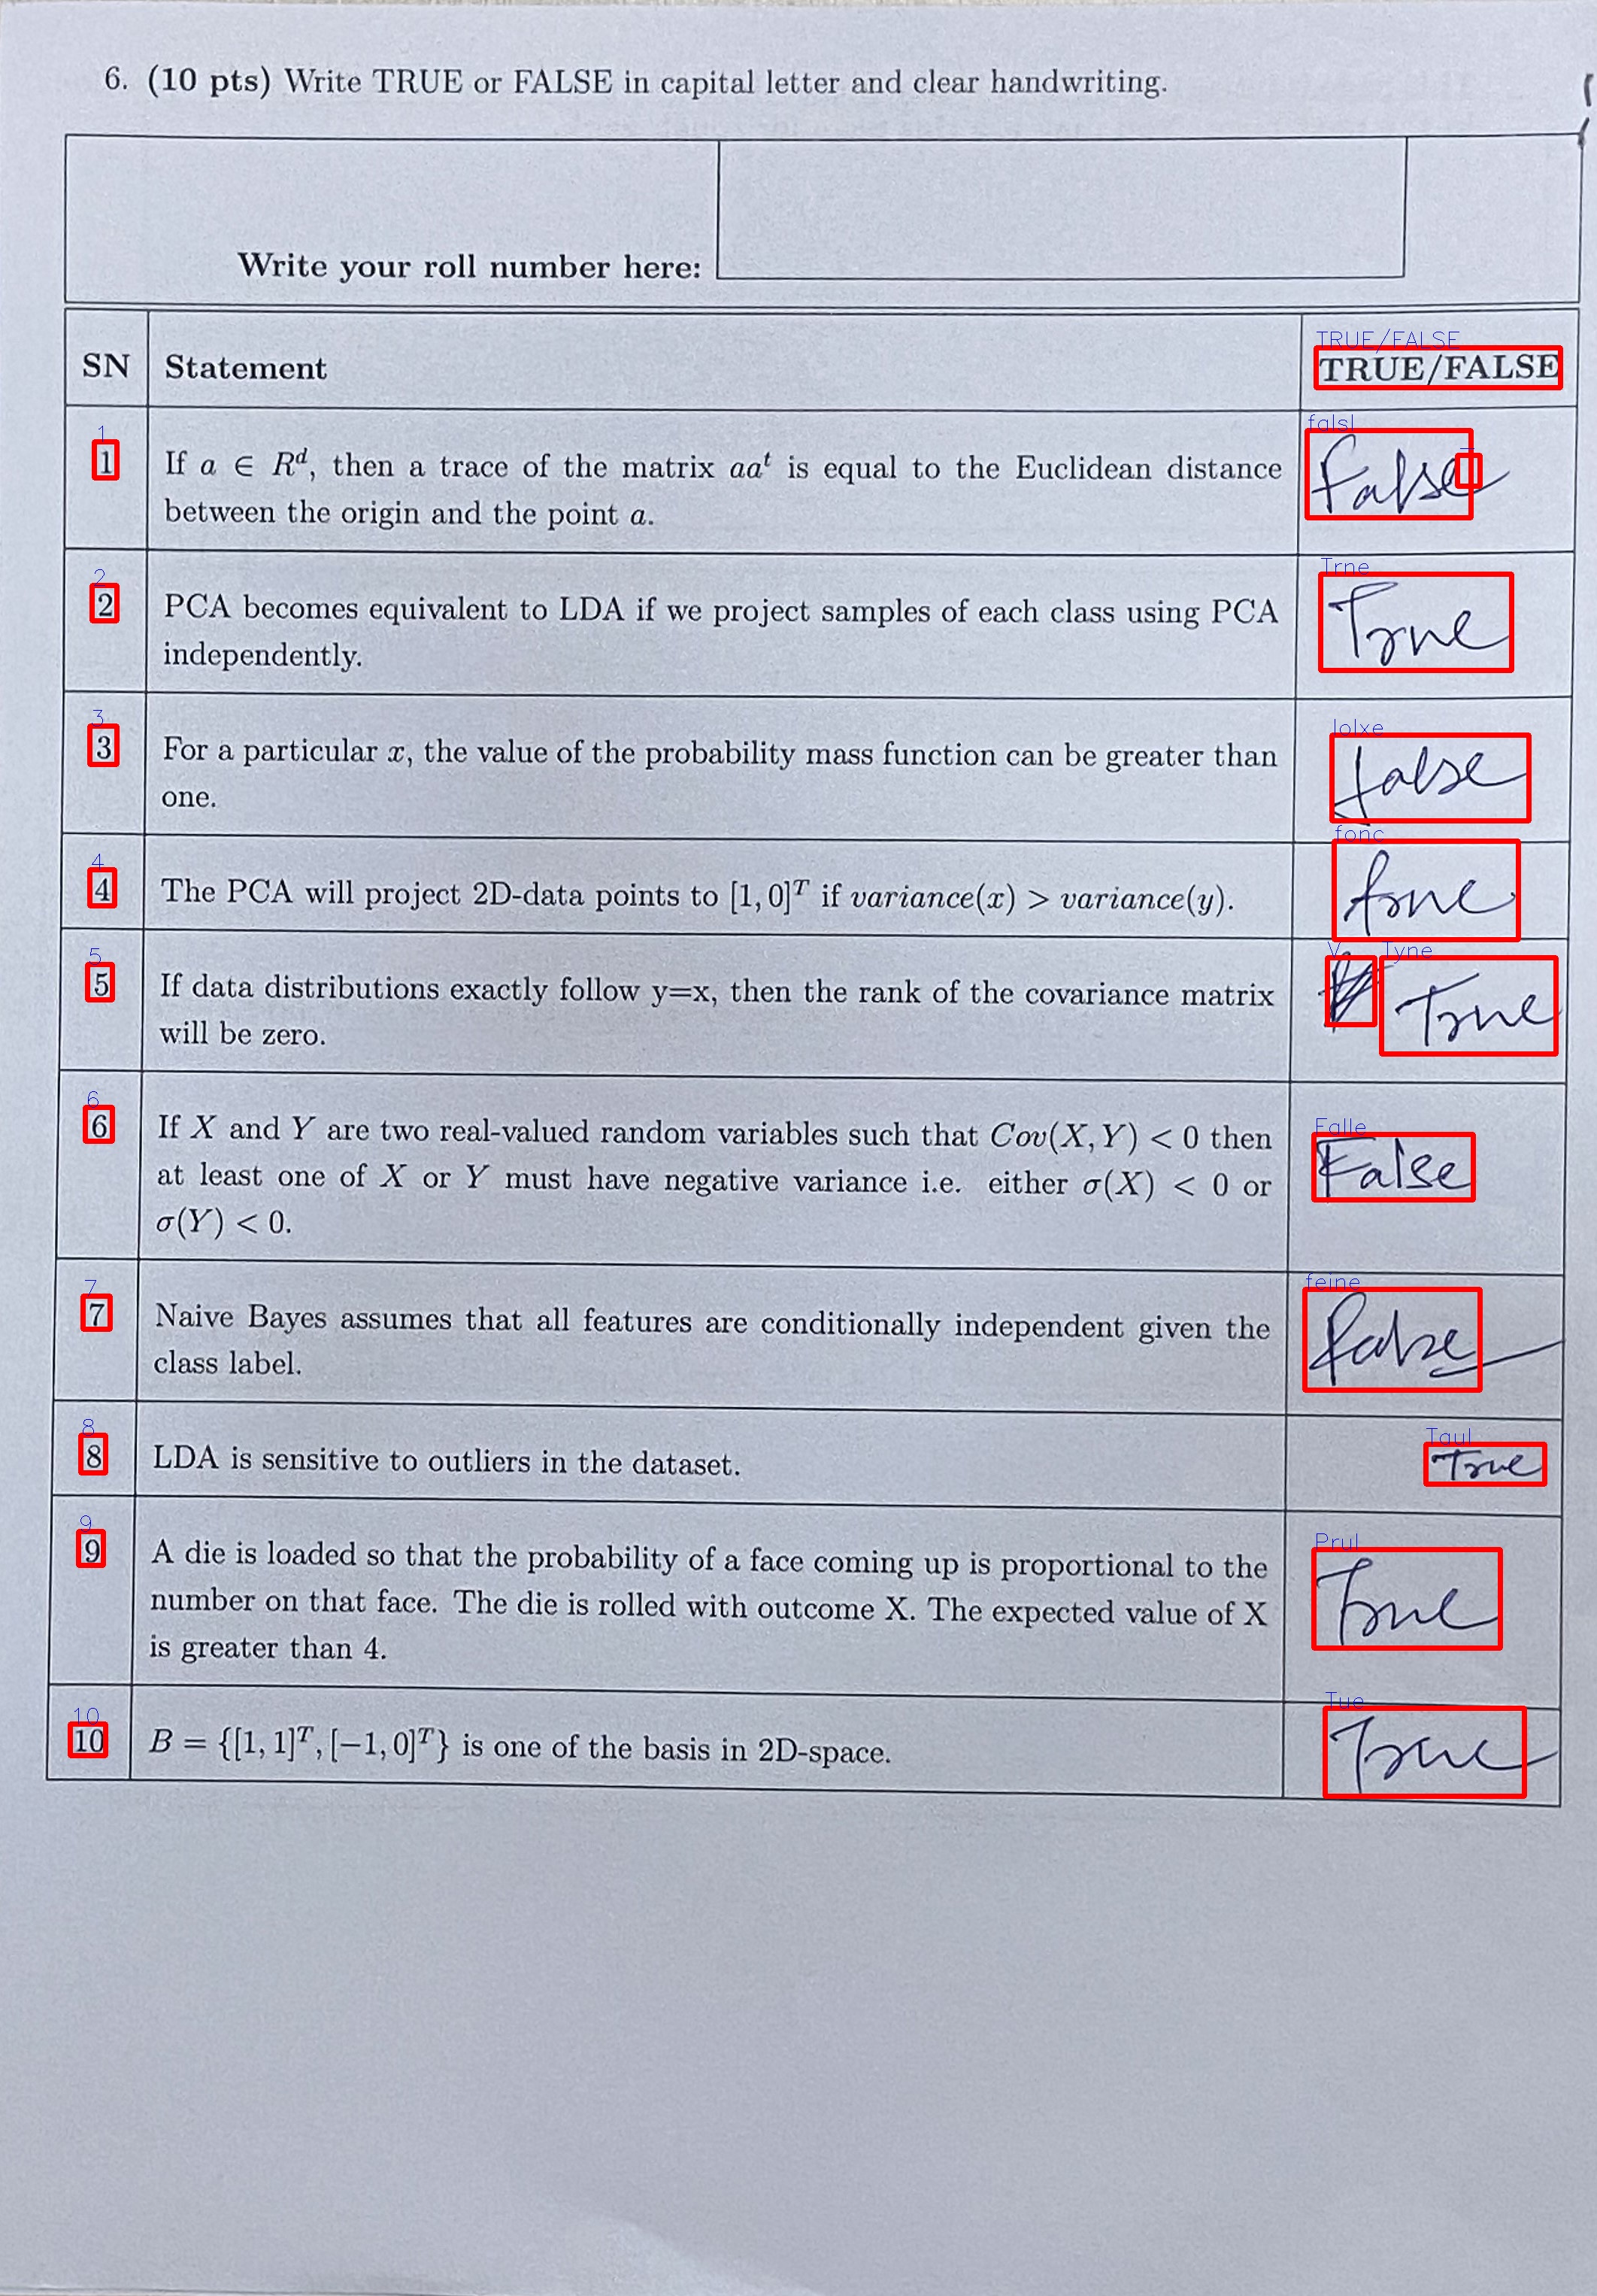 6. (10 pts) Write TRUE or FALSE in capital letter and clear handwriting.
Write your roll number here:
SN Statement TRUE/FALSE
TRUE/FALSE
1
1 If a ∈ R^d, then a trace of the matrix aa^t is equal to the Euclidean distance
between the origin and the point a.
falsl
False
2
2 PCA becomes equivalent to LDA if we project samples of each class using PCA
independently.
Trne
True
3
3 For a particular x, the value of the probability mass function can be greater than
one.
lolxe
false
4
4 The PCA will project 2D-data points to [1, 0]^T if variance(x) > variance(y).
fonc
true
5
5 If data distributions exactly follow y=x, then the rank of the covariance matrix
will be zero.
V Tyne
True
6
6 If X and Y are two real-valued random variables such that Cov(X, Y) < 0 then
at least one of X or Y must have negative variance i.e. either σ(X) < 0 or
σ(Y) < 0.
Falle
False
7
7 Naive Bayes assumes that all features are conditionally independent given the
class label.
feine
false
8
8 LDA is sensitive to outliers in the dataset.
Taul
True
9
9 A die is loaded so that the probability of a face coming up is proportional to the
number on that face. The die is rolled with outcome X. The expected value of X
is greater than 4.
Prul
True
10
10 B = {[1, 1]^T, [−1, 0]^T} is one of the basis in 2D-space.
Tue
True